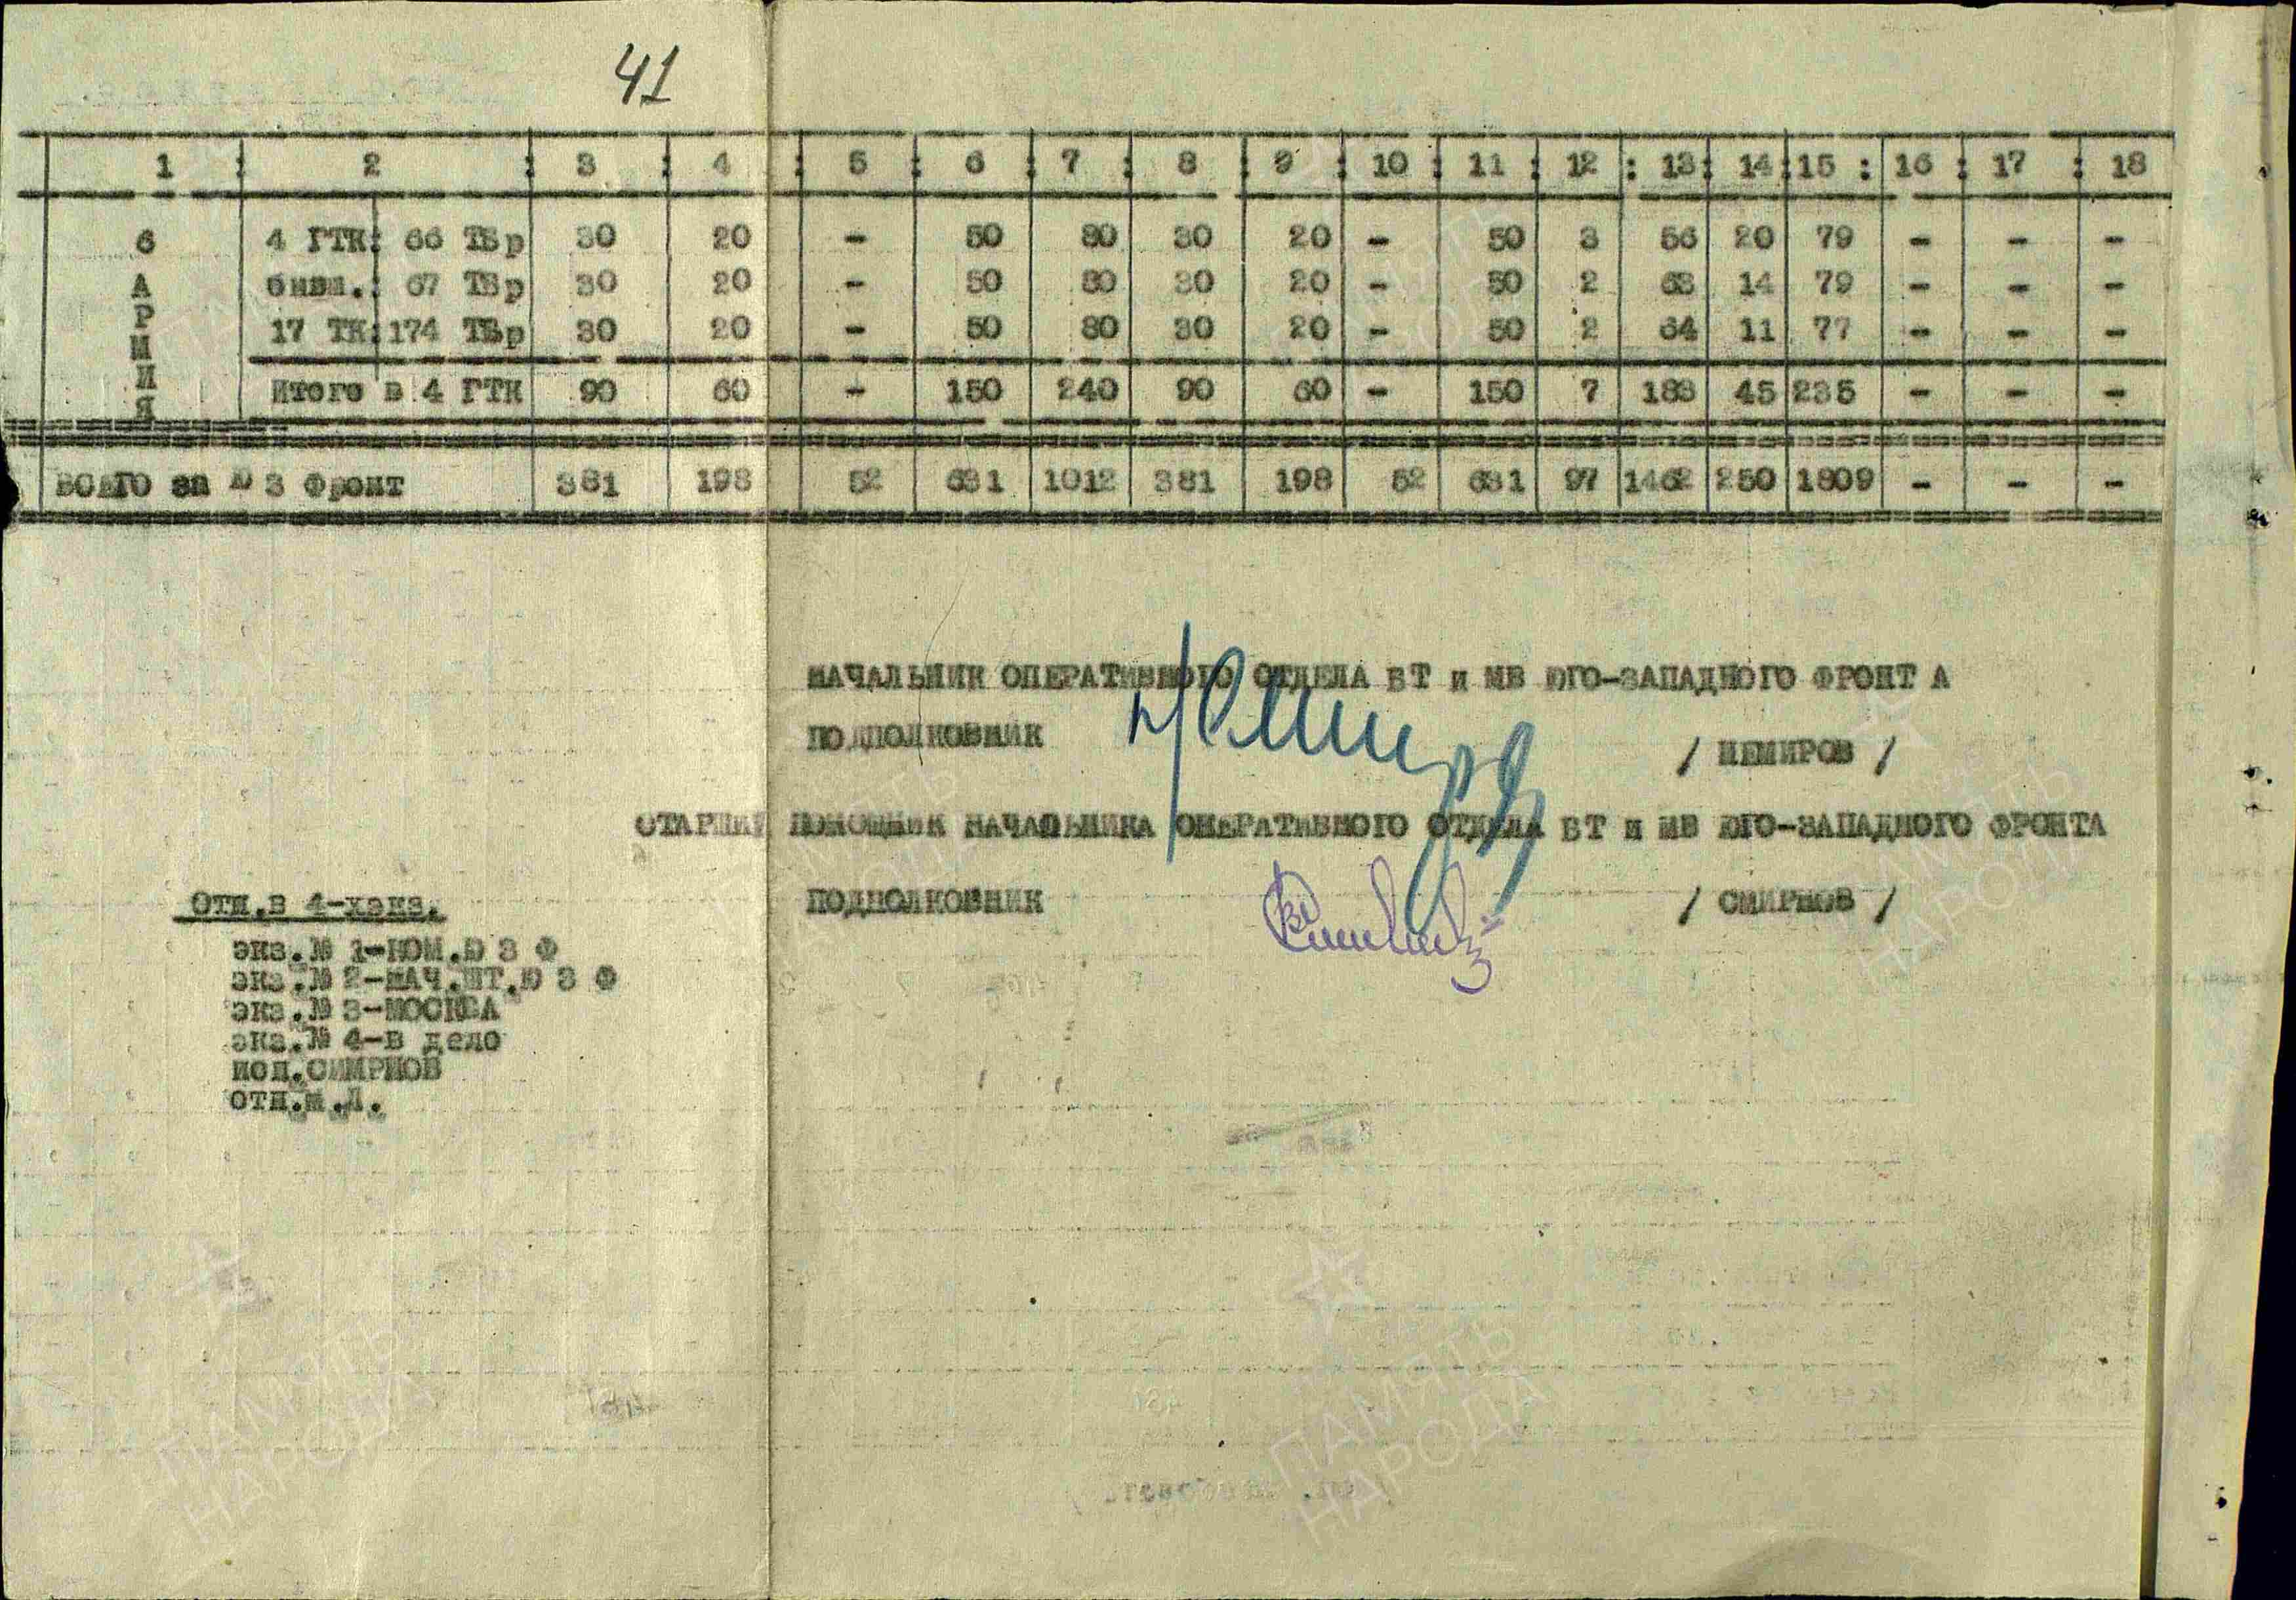 41
1 : 2 : 3 : 4 : 5 : 6 : 7 : 8 : 9 : 10 : 11 : 12 : 13 : 14 : 15 : 16 : 17 : 18
6 АРМИЯ
4 ГТК: 66 ТБр 30 20 - 50 80 30 20 - 50 3 56 20 79 - - -
бывш.: 67 ТБр 30 20 - 50 80 30 20 - 50 2 63 14 79 - - -
17 ТК:174 ТБр 30 20 - 50 80 30 20 - 50 2 64 11 77 - - -
Итого в 4 ГТК 90 60 - 150 240 90 60 - 150 7 183 45 235 - - -
ВСЕГО за Ю З Фронт 381 198 52 631 1012 381 198 52 631 97 1462 250 1809 - - -
НАЧАЛЬНИК ОПЕРАТИВНОГО ОТДЕЛА БТ и МВ ЮГО-ЗАПАДНОГО ФРОНТ А
ПОДПОЛКОВНИК / НЕМИРОВ /
СТАРШИЙ ПОМОЩНИК НАЧАЛЬНИКА ОПЕРАТИВНОГО ОТДЕЛА БТ и МВ ЮГО-ЗАПАДНОГО ФРОНТА
ПОДПОЛКОВНИК / СМИРНОВ /
Отп.в 4-хэкз.
экз.№ 1-КОМ.Ю З Ф
экз.№ 2-НАЧ.ШТ.Ю З Ф
экз.№ 3-МОСКВА
экз.№ 4-в дело
исп.СМИРНОВ
отп.м.Л.
ПАМЯТЬ
НАРОДА
ПАМЯТЬ
НАРОДА
ПАМЯТЬ
НАРОДА